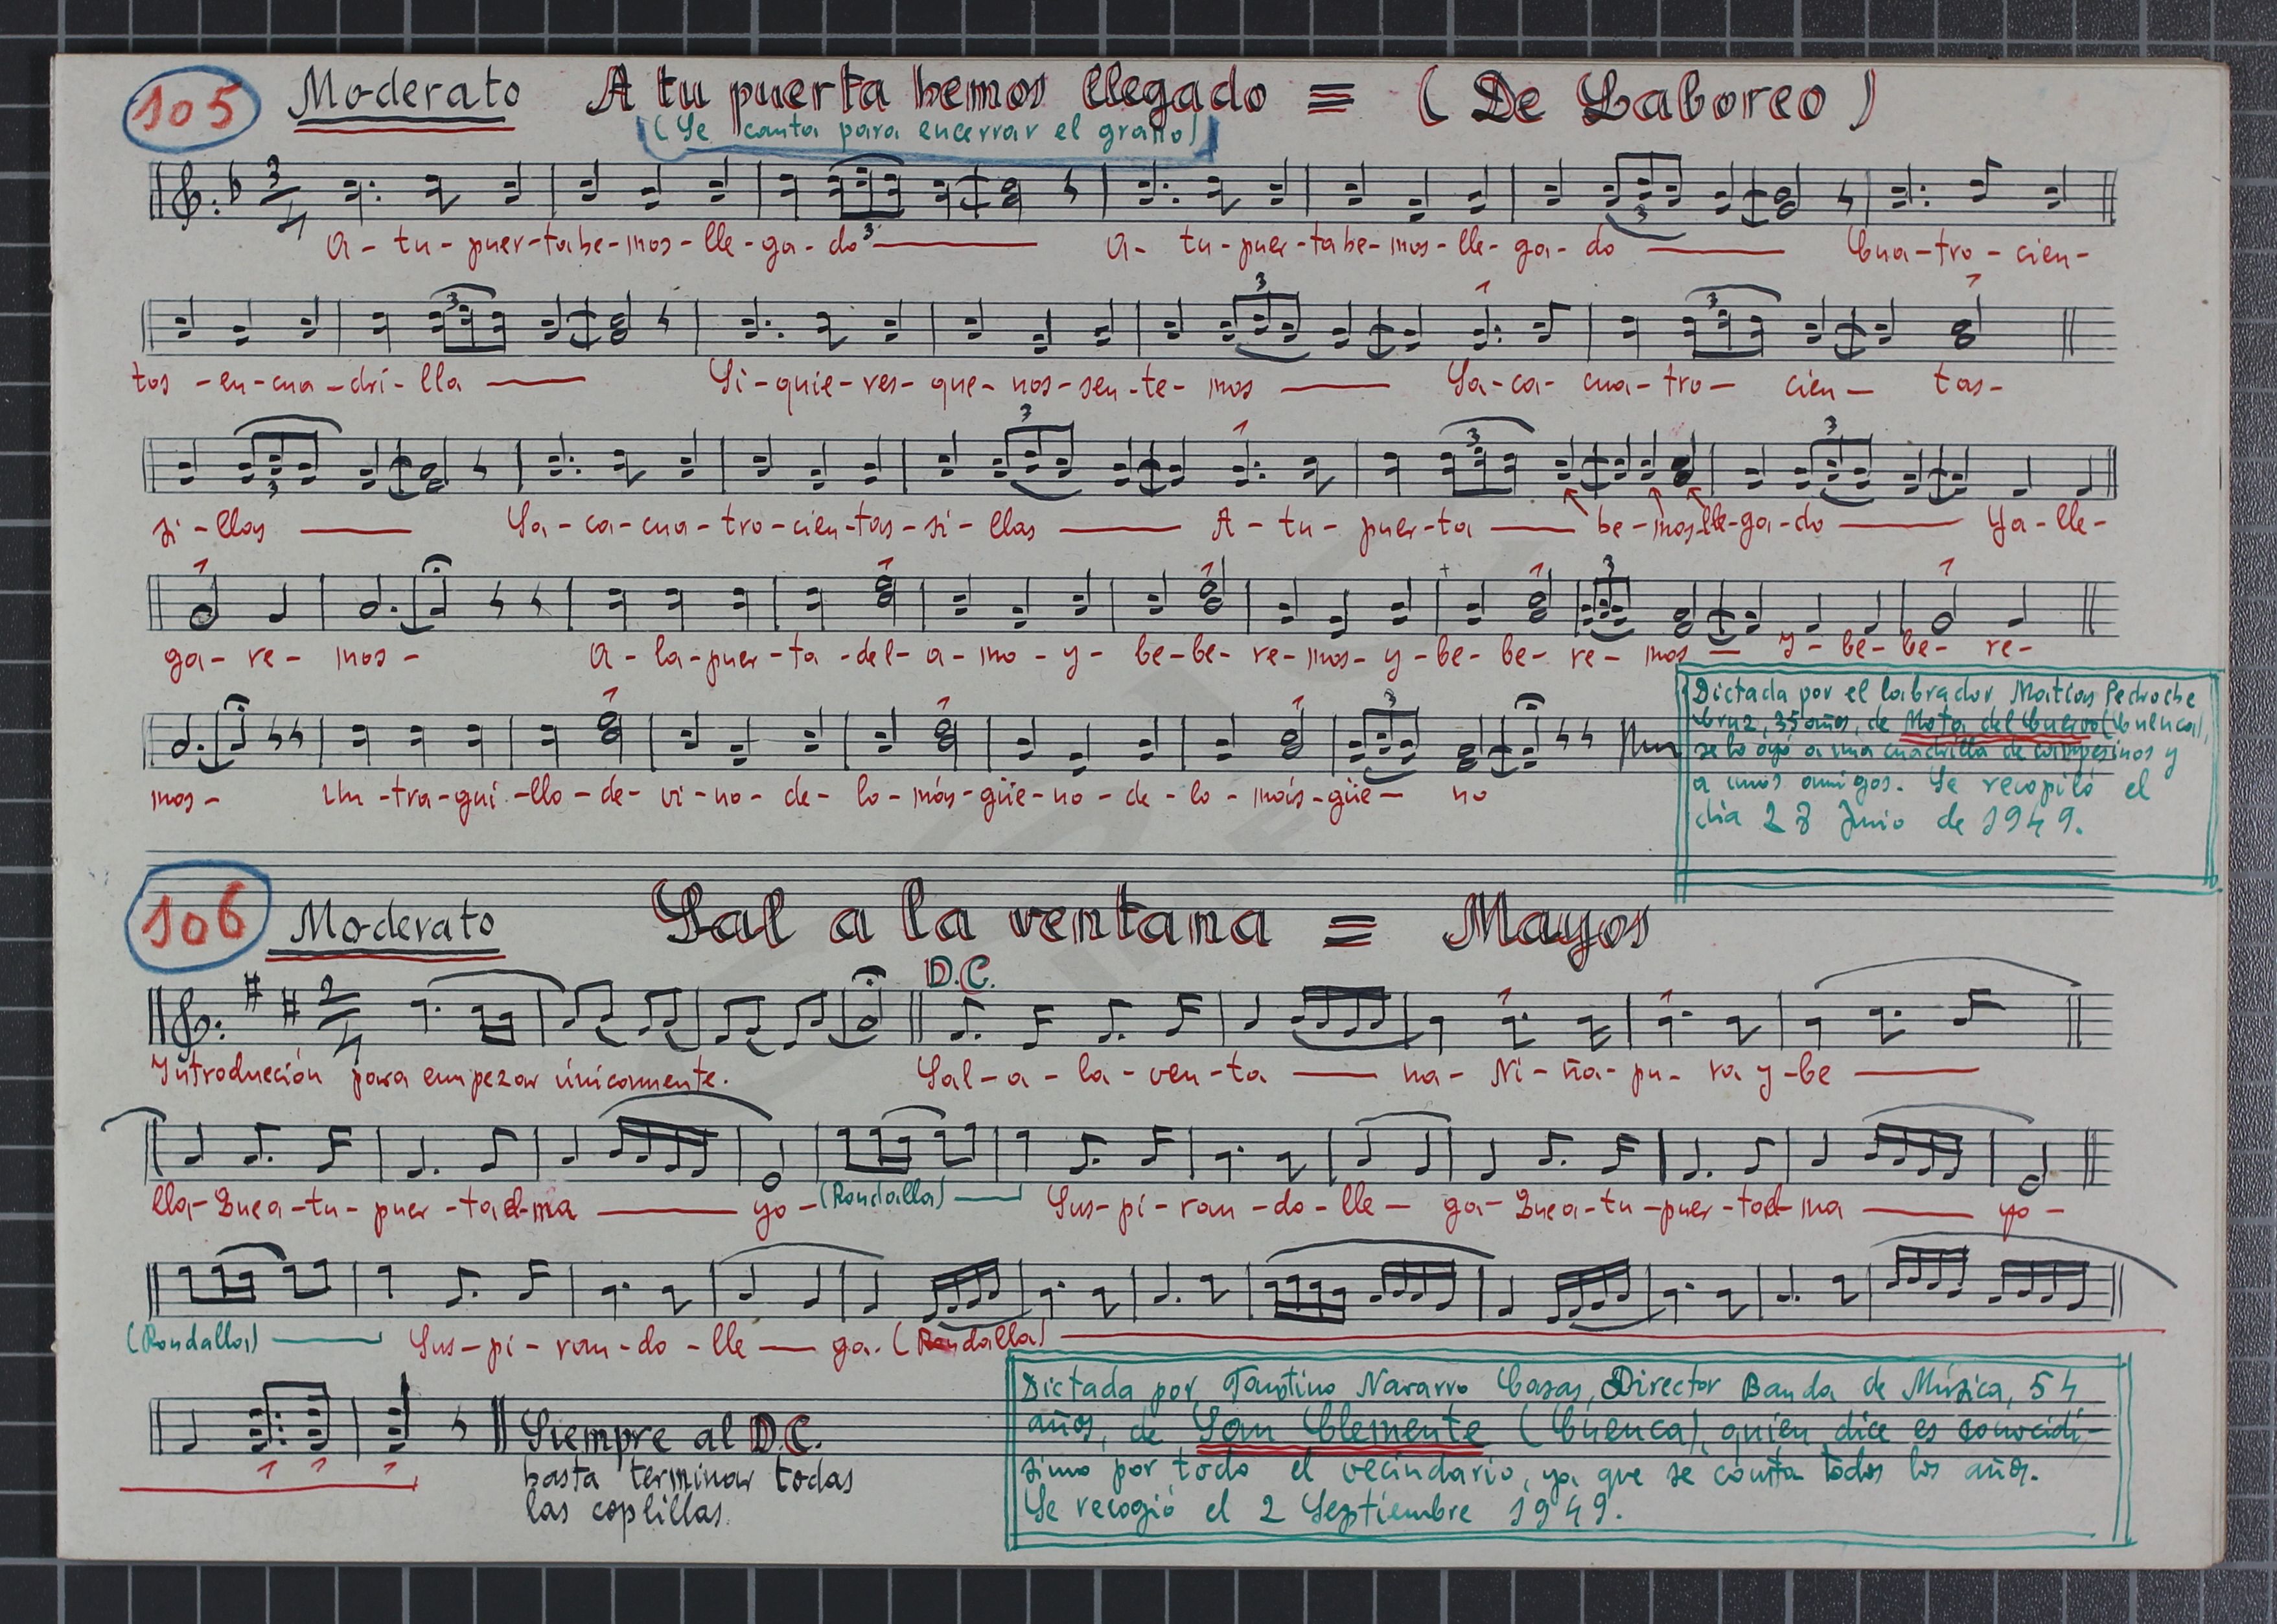 105 Moderato A tu puerta hemos llegado = (De Laboreo)
(Se canta para encerrar el grano)
3
4
A - tu - puer - tahe - mos - lle - ga - do A - tu - puer - tahe - mos - lle - ga - do Cua - tro - cien -
tos - en - cua - dri - lla Si - quie - res - que - nos - sen - te - mos Sa - ca - cua - tro - cien - tas -
si - llas Sa - ca - cua - tro - cien - tas - si - llas A - tu - puer - ta he - mos - lle - ga - do Ya - lle -
ga - re - mos - A - la - puer - ta - del - a - mo - y - be - be - re - mos - y - be - be - re - mos Y - be - be - re -
mos - Un - tra - gui - llo - de - vi - no - de - lo - más - güe - no - de - lo - más - güe - no
Dictada por el labrador Matías Pedroche
Cruz, 35 años, de Mota del Cuervo (Cuenca),
se lo oyó a una cuadrilla de campesinos y
a unos amigos. Se recopiló el
día 28 Junio de 1949.
106 Moderato Sal a la ventana = Mayos
D.C.
2
4
Introducción para empezar únicamente. Sal - a - la - ven - ta na - Ni - ña - pu - ra y - be
lla - Que a - tu - puer - tael - ma yo - (Rondalla) Sus - pi - ran - do - lle - ga - Que a - tu - puer - tael - ma yo -
(Rondalla) Sus - pi - ran - do - lle ga. (Rondalla)
Siempre al D.C.
hasta terminar todas
las coplillas.
Dictada por Faustino Navarro Casas, Director Banda de Música, 54
años, de San Clemente (Cuenca), quien dice es conocidí-
simo por todo el vecindario, ya que se canta todos los años.
Se recogió el 2 Septiembre 1949.